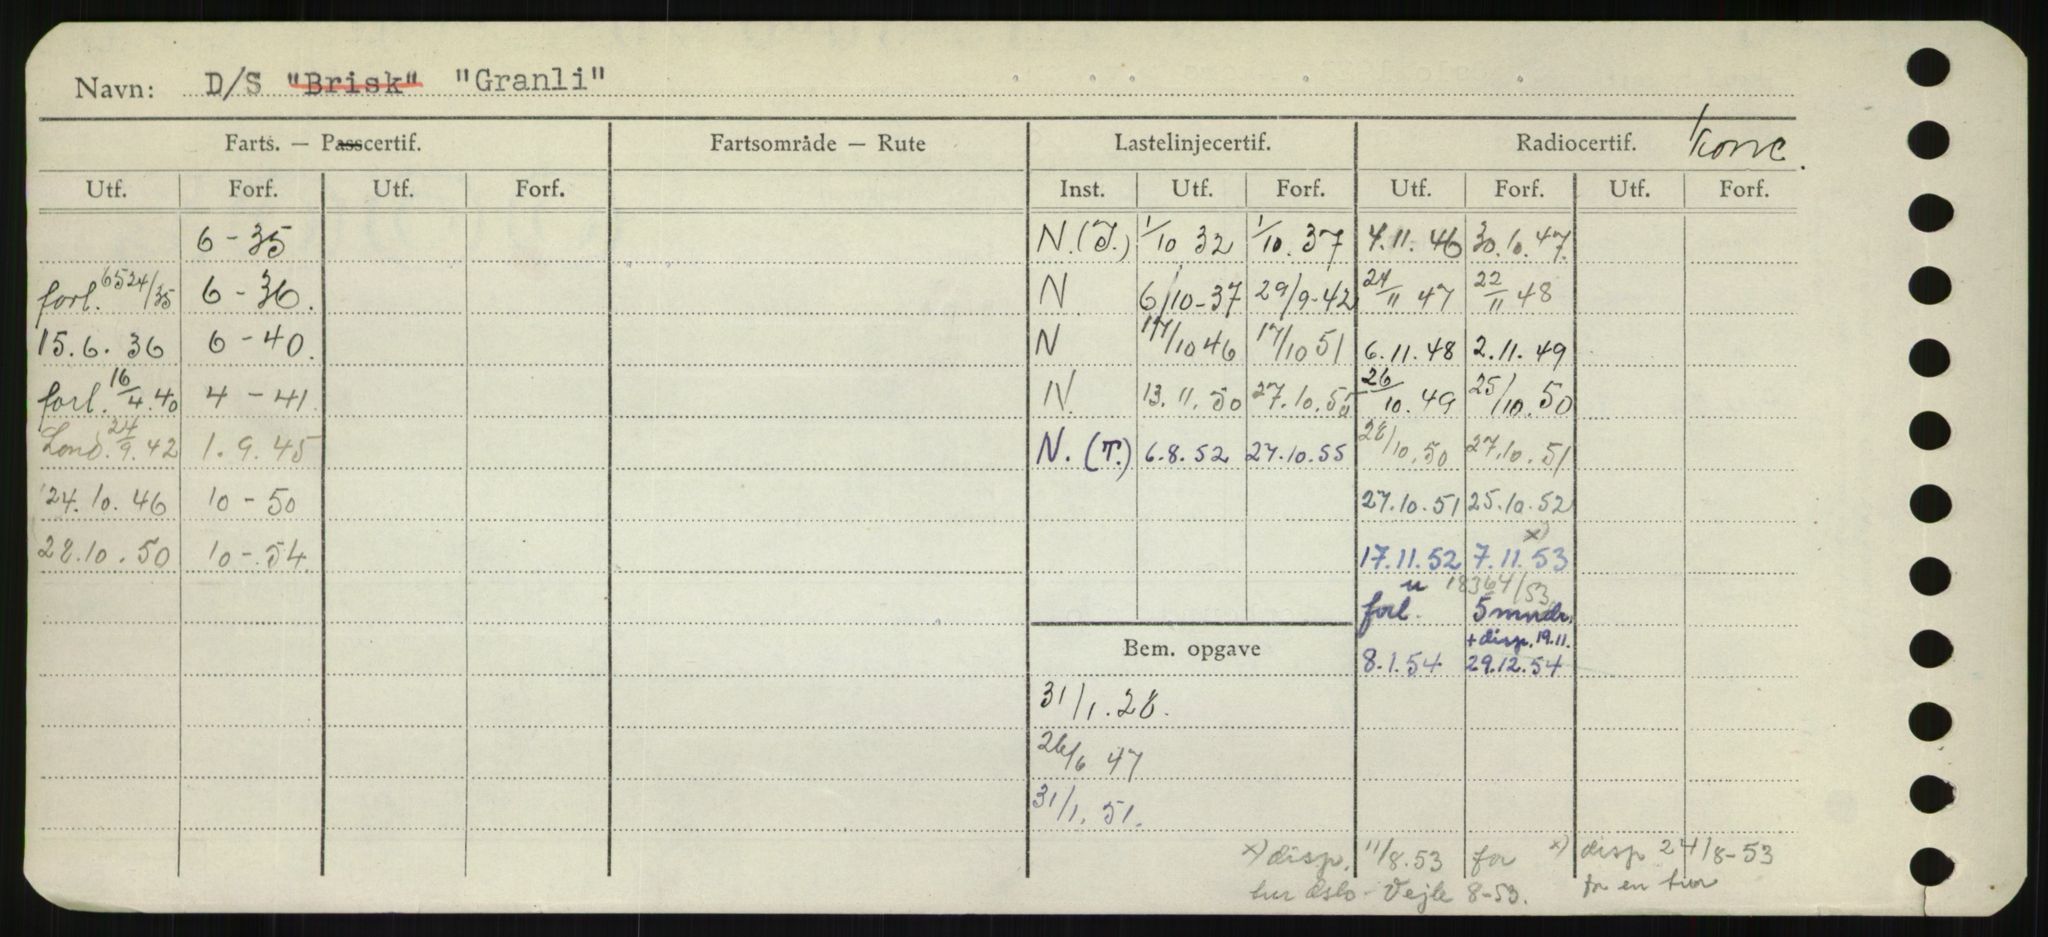 Navn: D/S "Brisk" "Granli"
Farts. — Passcertif. Fartsområde — Rute Lastelinjecertif. Radiocertif. konc.
Utf. Forf. Utf. Forf. Inst. Utf. Forf. Utf. Forf. Utf. Forf.
6 - 35 N. (T.) 1/10 32 1/10. 37 4.11. 46 30.10. 47.
forl. 6524/35 6 - 36. N 6/10-37 29/9-42 24/11 47 22/11 48
15.6. 36 6 - 40. N 17/10 46 17/10 51 6.11. 48 2.11. 49
forl. 16/4.40 4 - 41. N. 13. 11. 50 27.10.55 26/10. 49 25/10. 50
Lond. 24/9. 42 1. 9. 45 N. (T.) 6.8. 52 27.10.55 28/10.50 27.10.51
24. 10. 46 10 - 50 27.10.51 25.10.52
x)
28.10.50 10 - 54 17.11.52 7.11.53
18364/53
forl. 5 mndr.
+ disp. 19.11.
Bem. opgave 8.1.54 29.12.54
31/1. 28.
26/6 47
31/1. 51.
x) disp. 11/8.53 for x) disp 24/8-53
tur Oslo - Vejle 8-53. for en tur